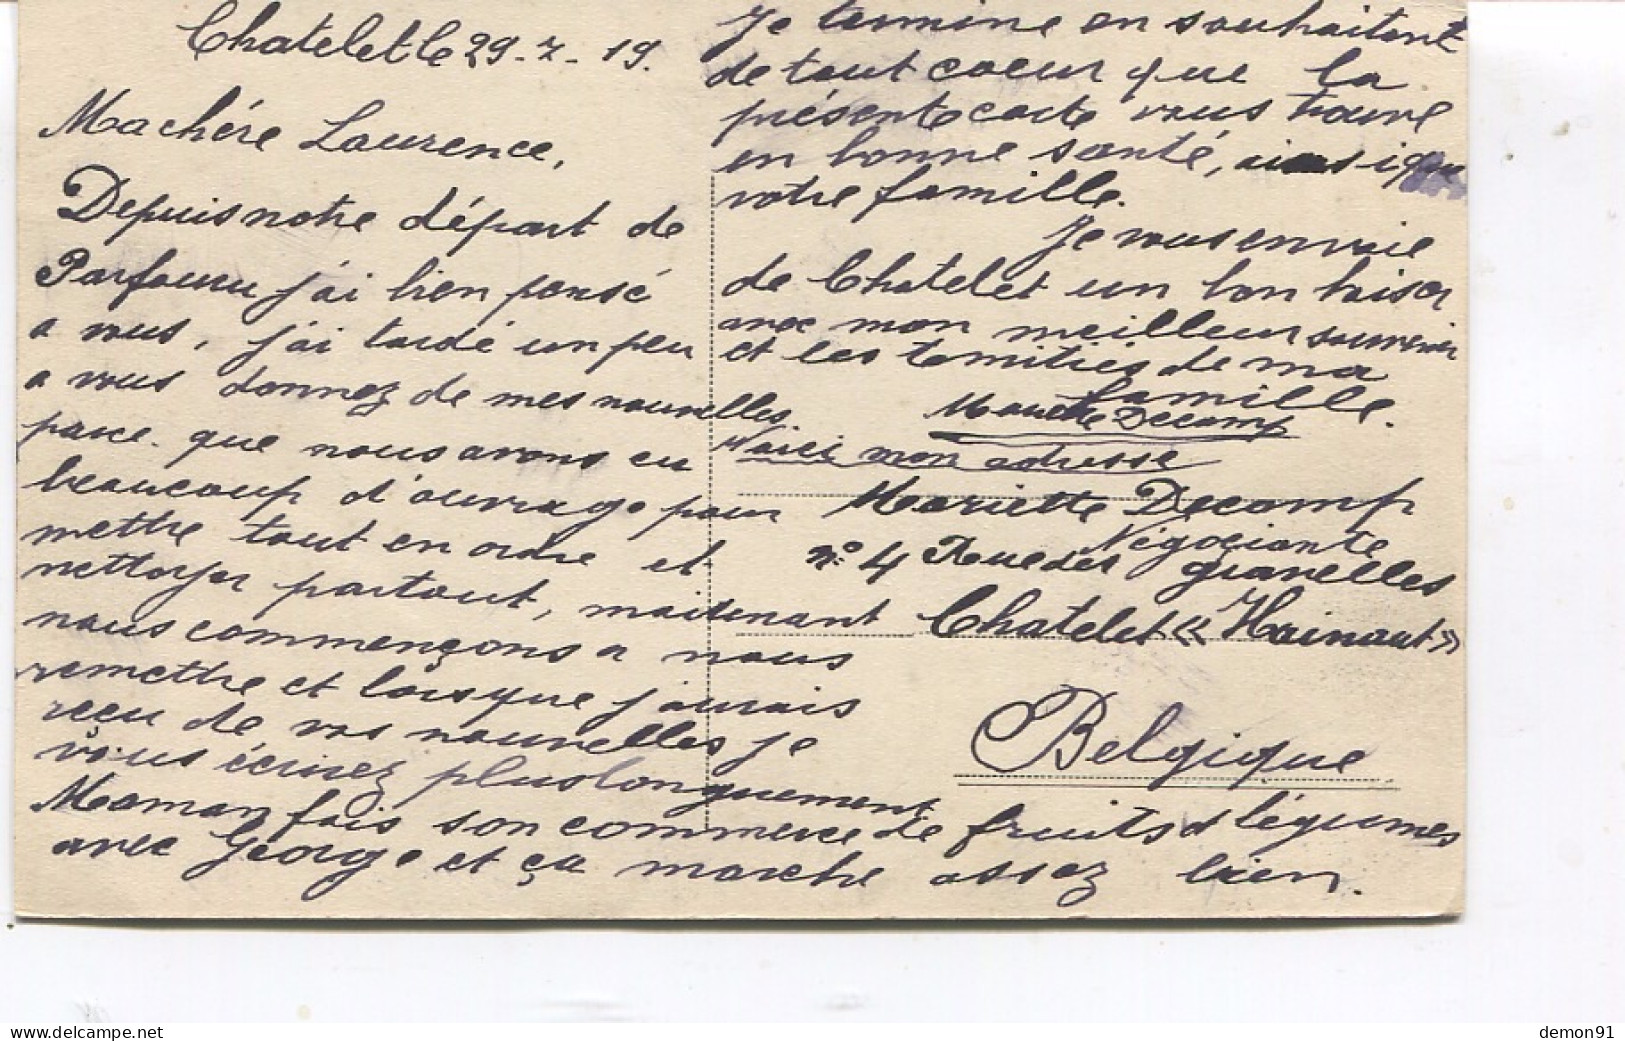 Chatelet le 29-7-19.
Ma chére Laurence,
Depuis notre départ de
Parfouru j'ai bien pensé
a vous, j'ai tardé un peu
a vous donnez de mes nouvelles
parce que nous avons eu
beaucoup d'ouvrage pour
mettre tout en ordre et
nettoyer partout, maitenant
nous commençons a nous
remettre et lorsque j'aurais
reçu de vos nouvelles je
vous écrirez plus longuement
Maman fais son commerce de fruits d légumes
avec George et ça marche assez bien.
Je termine en souhaitant
de tout coeur que la
présente carte vous trouve
en bonne santé, ainsi que
votre famille.
Je vous envoie
de Chatelet un bon baiser
avec mon meilleur souvenir
et les tamitiés de ma
famille.
Decamp
Voici mon adresse
Mariette Decamp
Négociante
n° 4 Rue des gravelles
Chatelet « Hainaut »
Belgique
demon91